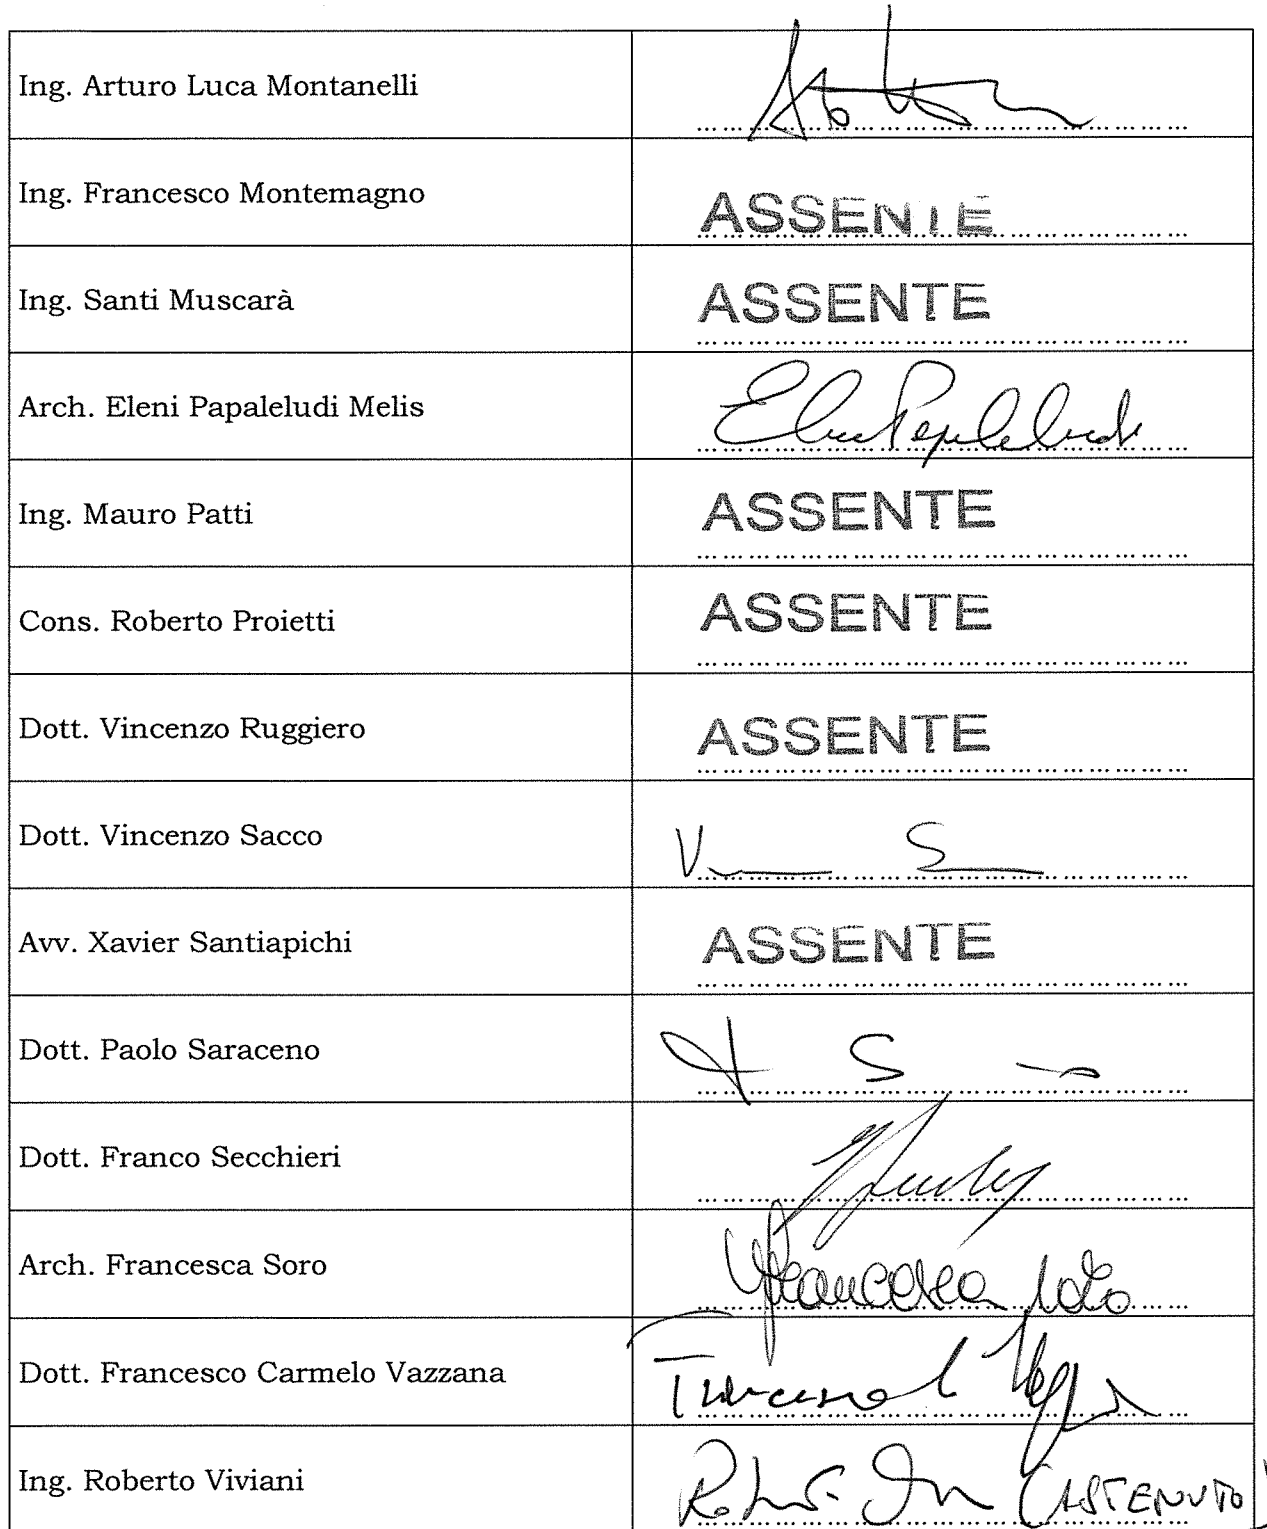 Ing. Arturo Luca Montanelli
Ing. Francesco Montemagno ASSENTE
Ing. Santi Muscarà ASSENTE
Arch. Eleni Papaleludi Melis
Ing. Mauro Patti ASSENTE
Cons. Roberto Proietti ASSENTE
Dott. Vincenzo Ruggiero ASSENTE
Dott. Vincenzo Sacco
Avv. Xavier Santiapichi ASSENTE
Dott. Paolo Saraceno
Dott. Franco Secchieri
Arch. Francesca Soro Francesca Soro
Dott. Francesco Carmelo Vazzana
Ing. Roberto Viviani (ASTENUTO)